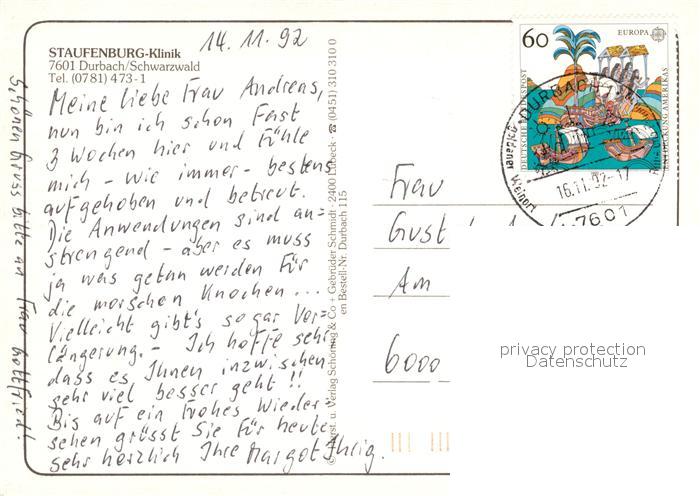 14.11.92
STAUFENBURG-Klinik
7601 Durbach/Schwarzwald
Tel. (0781) 473-1
Meine liebe Frau Andreas,
nun bin ich schon fast
3 Wochen hier und fühle
mich - wie immer - bestens
aufgehoben und betreut.
Die Anwendungen sind an-
strengend - aber es muss
ja was getan werden für
die morschen Knochen...
Vielleicht gibt's sogar Ver-
längerung. - Ich hoffe sehr
dass es Ihnen inzwischen
sehr viel besser geht !!
Bis auf ein frohes Wieder-
sehen grüsst Sie für heute
sehr herzlich Ihre Margot Ihrig.
Schönen Gruss bitte an Frau Gottfried!
st. u. Verlag Schöning & Co + Gebrüder Schmidt · 2400 Lübeck · ☎ (0451) 310 310 0
en Bestell-Nr. Durbach 115
60
EUROPA
DEUTSCHE BUNDESPOST
ENTDECKUNG AMERIKAS
DURBACH
16.11.92-17
7601
Frau
Gust
Am
6000
privacy protection
Datenschutz